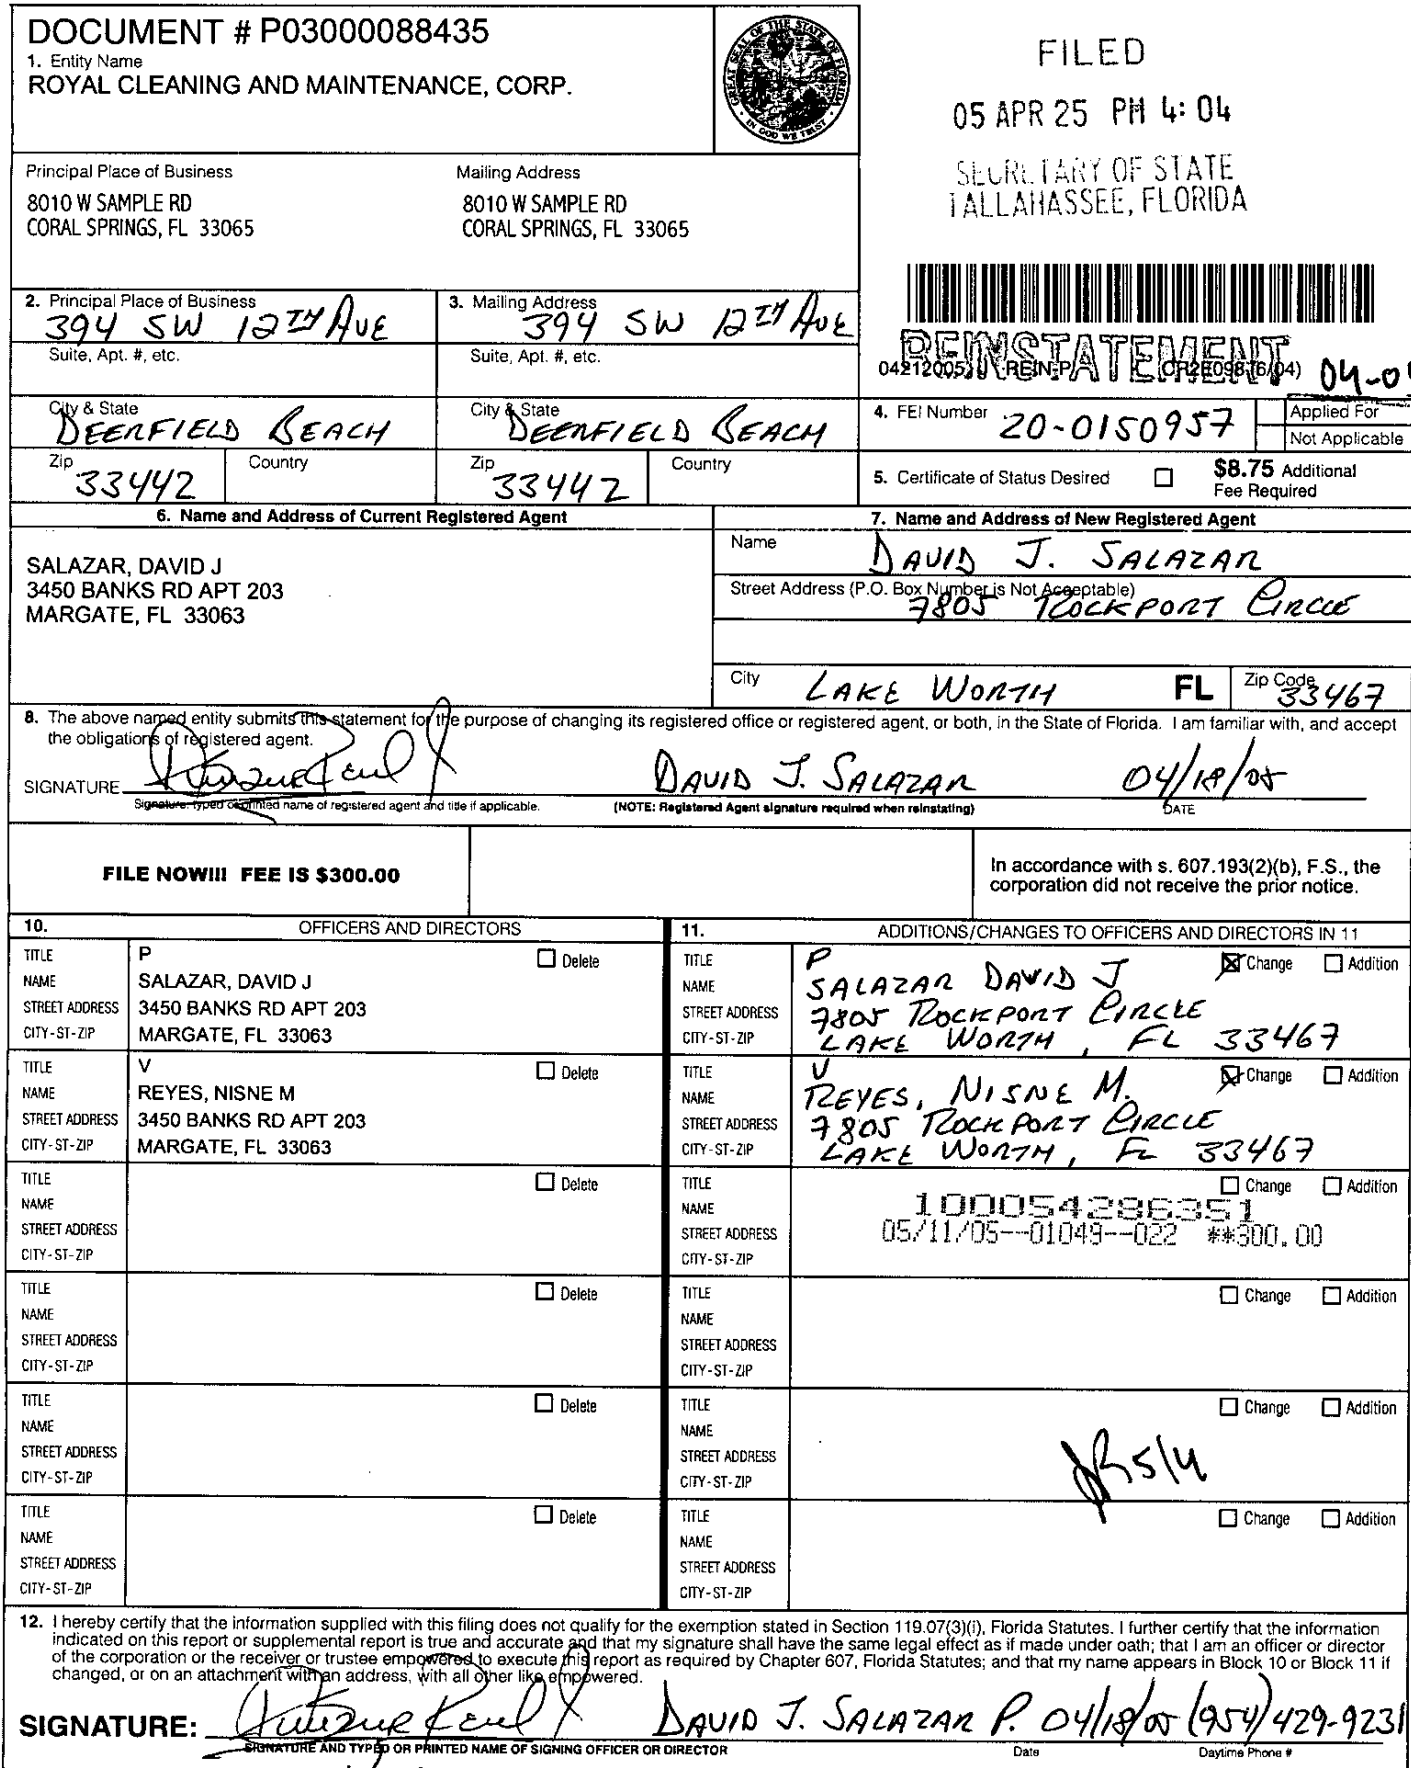 DOCUMENT # P03000088435
1. Entity Name
ROYAL CLEANING AND MAINTENANCE, CORP.
GREAT SEAL OF THE STATE OF FLORIDA
IN GOD WE TRUST
FILED
05 APR 25 PM 4:04
SECRETARY OF STATE
TALLAHASSEE, FLORIDA
Principal Place of Business
8010 W SAMPLE RD
CORAL SPRINGS, FL 33065
Mailing Address
8010 W SAMPLE RD
CORAL SPRINGS, FL 33065
2. Principal Place of Business
394 SW 12TH AVE
Suite, Apt. #, etc.
City & State
DEERFIELD BEACH
Zip
33442
Country
3. Mailing Address
394 SW 12TH AVE
Suite, Apt. #, etc.
City & State
DEERFIELD BEACH
Zip
33442
Country
REINSTATEMENT
04212005 REIN-P CR2E098 (6/04)
4. FEI Number
20-0150957
Applied For
Not Applicable
5. Certificate of Status Desired
$8.75 Additional
Fee Required
6. Name and Address of Current Registered Agent
SALAZAR, DAVID J
3450 BANKS RD APT 203
MARGATE, FL 33063
7. Name and Address of New Registered Agent
Name
DAVID J. SALAZAR
Street Address (P.O. Box Number is Not Acceptable)
7805 ROCKPORT CIRCLE
City
LAKE WORTH
FL
Zip Code
33467
8. The above named entity submits this statement for the purpose of changing its registered office or registered agent, or both, in the State of Florida. I am familiar with, and accept
the obligations of registered agent.
SIGNATURE
DAVID J. SALAZAR
04/18/05
Signature, typed or printed name of registered agent and title if applicable.
(NOTE: Registered Agent signature required when reinstating)
DATE
FILE NOW!!! FEE IS $300.00
In accordance with s. 607.193(2)(b), F.S., the
corporation did not receive the prior notice.
10. OFFICERS AND DIRECTORS
TITLE P
Delete
NAME SALAZAR, DAVID J
STREET ADDRESS 3450 BANKS RD APT 203
CITY-ST-ZIP MARGATE, FL 33063
TITLE V
Delete
NAME REYES, NISNE M
STREET ADDRESS 3450 BANKS RD APT 203
CITY-ST-ZIP MARGATE, FL 33063
TITLE
Delete
NAME
STREET ADDRESS
CITY-ST-ZIP
TITLE
Delete
NAME
STREET ADDRESS
CITY-ST-ZIP
TITLE
Delete
NAME
STREET ADDRESS
CITY-ST-ZIP
TITLE
Delete
NAME
STREET ADDRESS
CITY-ST-ZIP
11. ADDITIONS/CHANGES TO OFFICERS AND DIRECTORS IN 11
TITLE P
Change Addition
NAME SALAZAR DAVID J
STREET ADDRESS 7805 ROCKPORT CIRCLE
CITY-ST-ZIP LAKE WORTH, FL 33467
TITLE V
Change Addition
NAME REYES, NISNE M.
STREET ADDRESS 7805 ROCKPORT CIRCLE
CITY-ST-ZIP LAKE WORTH, FL 33467
TITLE
Change Addition
NAME 100054286351
STREET ADDRESS 05/11/05--01049--022 **300.00
CITY-ST-ZIP
TITLE
Change Addition
NAME
STREET ADDRESS
CITY-ST-ZIP
TITLE
Change Addition
NAME
STREET ADDRESS
CITY-ST-ZIP
5/4
TITLE
Change Addition
NAME
STREET ADDRESS
CITY-ST-ZIP
12. I hereby certify that the information supplied with this filing does not qualify for the exemption stated in Section 119.07(3)(i), Florida Statutes. I further certify that the information
indicated on this report or supplemental report is true and accurate and that my signature shall have the same legal effect as if made under oath; that I am an officer or director
of the corporation or the receiver or trustee empowered to execute this report as required by Chapter 607, Florida Statutes; and that my name appears in Block 10 or Block 11 if
changed, or on an attachment with an address, with all other like empowered.
SIGNATURE:
DAVID J. SALAZAR P. 04/18/05 (954) 429-9231
SIGNATURE AND TYPED OR PRINTED NAME OF SIGNING OFFICER OR DIRECTOR
Date
Daytime Phone #